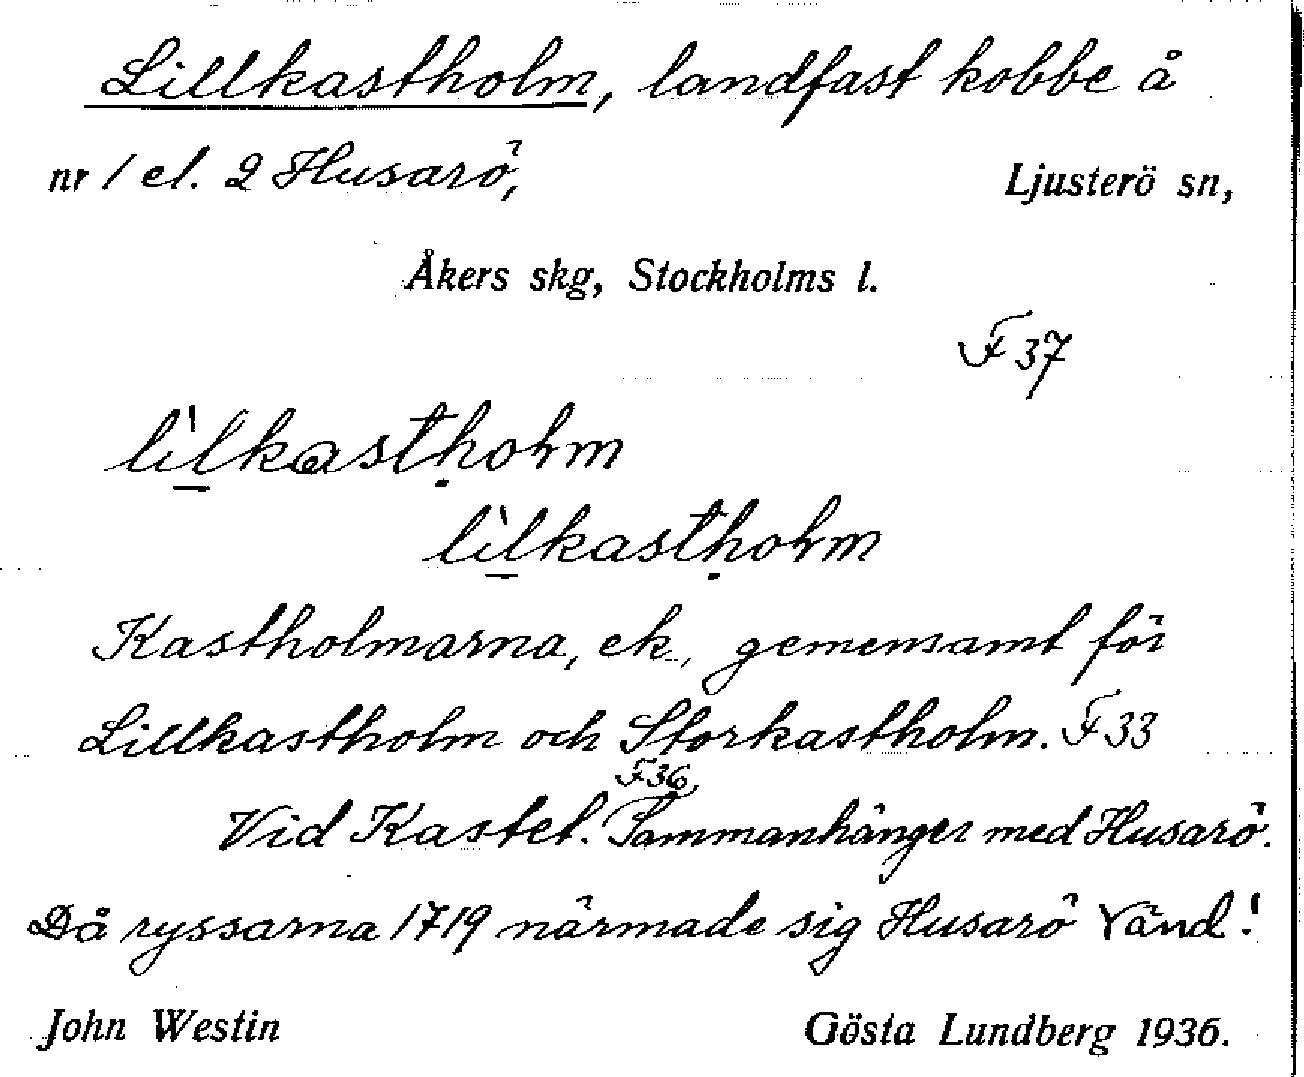 Lillkastholm, landfast kobbe å
nr 1 el. 2 Husarö, Ljusterö sn,
Åkers skg, Stockholms l.
F 37
lìlkastholm
lìlkastholm
Kastholmarna, ek., gemensamt för
Lillkastholm och Storkastholm. F 33
F 36
Vid Kastet. Sammanhänger med Husarö.
Då ryssarna 1719 närmade sig Husarö Vänd!
John Westin Gösta Lundberg 1936.